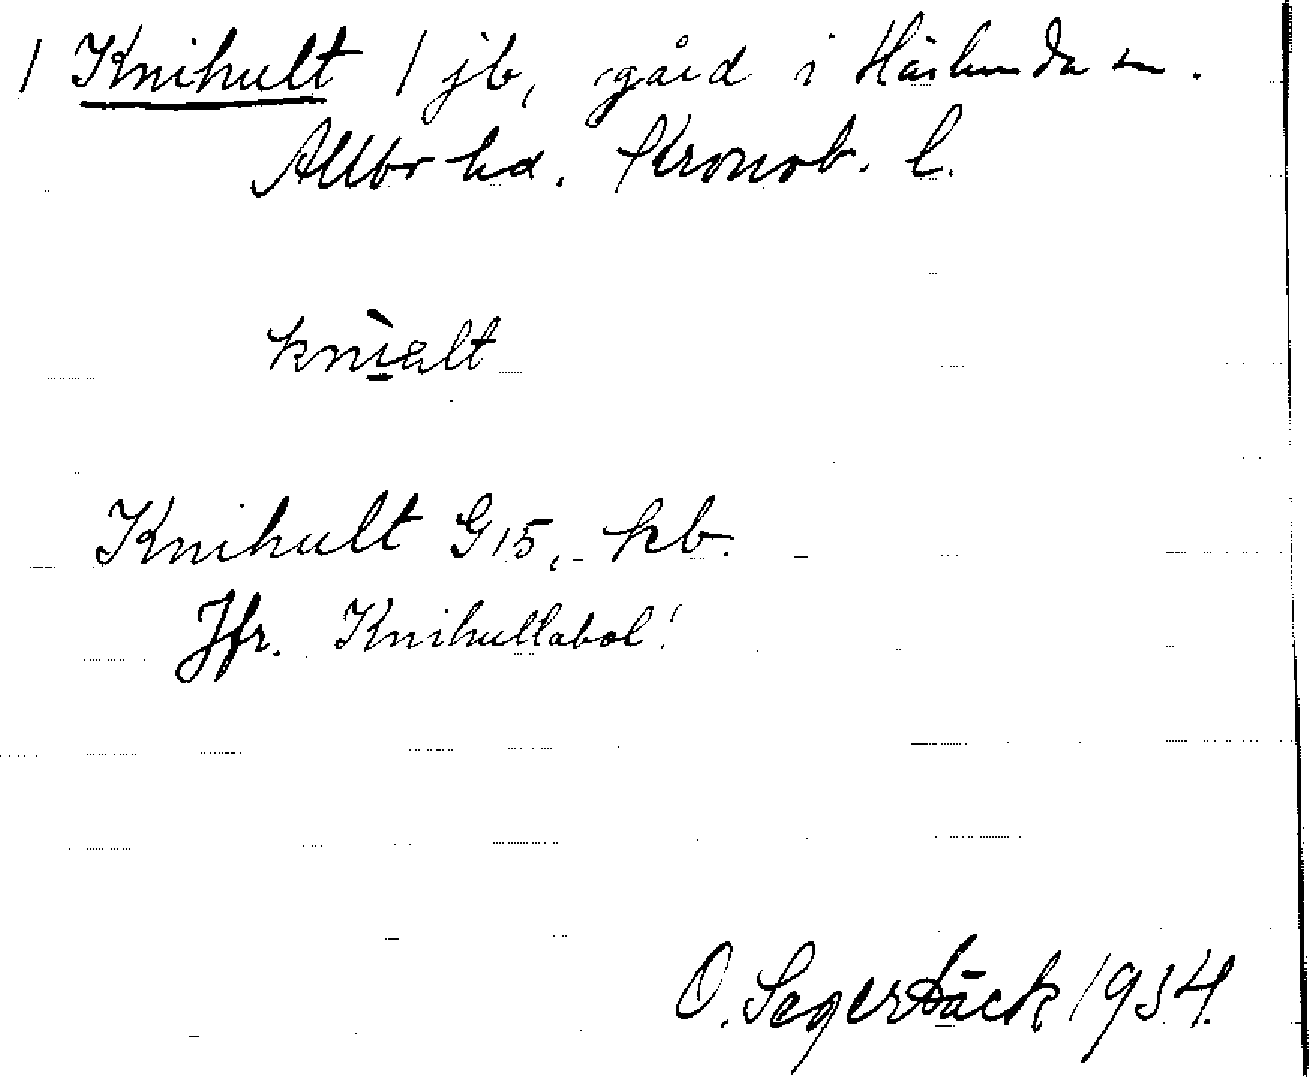 / Knihult / jb, gård i Härlunda sn.
Allbo hd. Kronob. l.
knìəlt
Knihult G 15, kb.
Jfr. Knihultabol!
O. Segerbäck 1934.